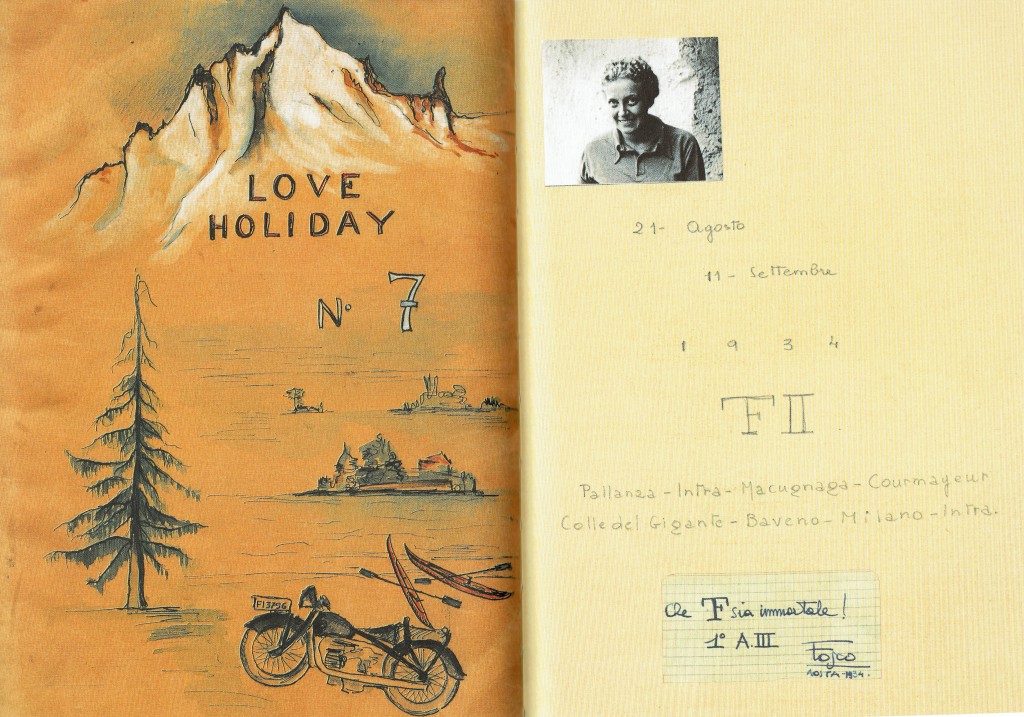 LOVE
HOLIDAY
N° 7
FI3796
21 - Agosto
11 - Settembre
1 9 3 4
F II
Pallanza - Intra - Macugnaga - Courmayeur
Colle del Gigante - Baveno - Milano - Intra.
Che F sia immortale!
1° A. III
Fosco
AOSTA - 1934.